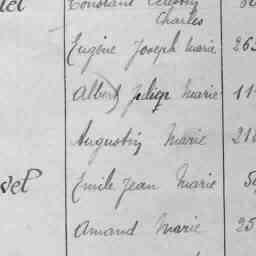 Constant
Charles
Eugène Joseph Marie 263
Albert Julien Marie 11
Augustin Marie 218
vel Emile Jean Marie 5
Amand Marie 25